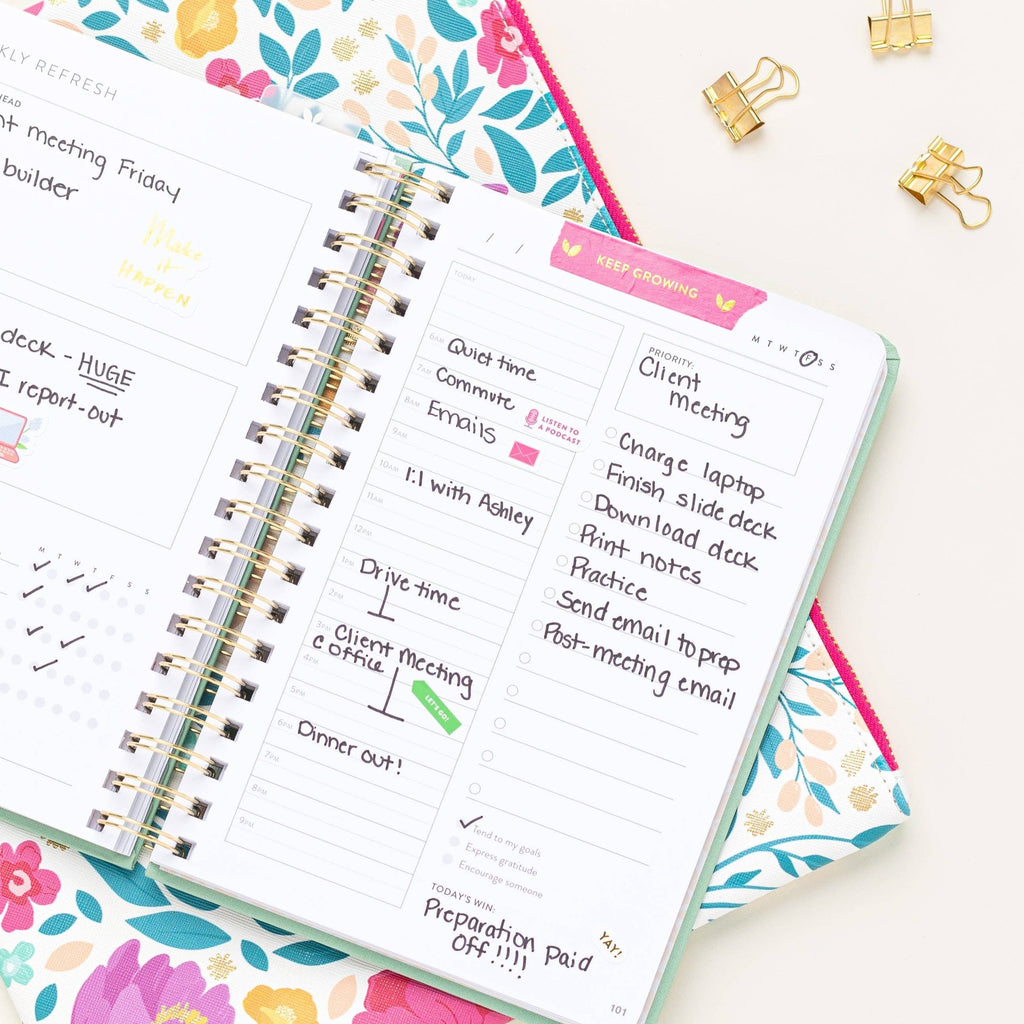 KLY REFRESH
HEAD
nt meeting Friday
builder
Make
it
HAPPEN
deck - HUGE
I report-out
M T W T F S S
/ /
KEEP GROWING
M T W T F S S
TODAY
6AM Quiet time
7AM Commute
LISTEN TO
A PODCAST
8AM Emails
9AM
10AM 1:1 with Ashley
11AM
12PM
1PM Drive time
2PM
3PM Client Meeting
@ Office
4PM
LET'S GO!
5PM
6PM Dinner out!
7PM
8PM
9PM
PRIORITY:
Client
Meeting
Charge laptop
Finish slide deck
Download deck
Print notes
Practice
Send email to prep
Post-meeting email
Tend to my goals
Express gratitude
Encourage someone
TODAY'S WIN:
Preparation Paid
Off!!!!
YAY!
101